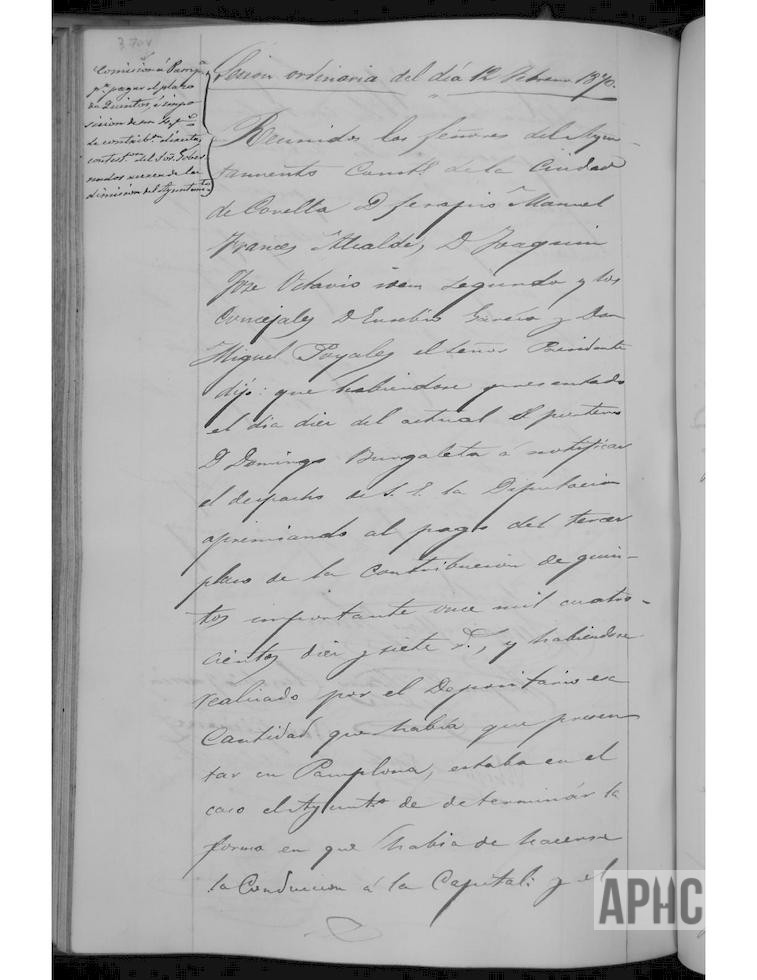 Comision á Pamp.ª
p.ª pagar el plazo
de Quintos, é impo
sicion de un
de contrib.n directa,
contest.n del Sor. Gober
nador acerca de la
dimision del Ayuntam.to
Sesion ordinaria del dia 12 Febrero 1870.
Reunidos los señores del Ayun-
tamiento Const.l de la Ciudad
de Corella D Serapio Manuel
Frances Alcalde, D Joaquin
Jose Octavio idem segundo y los
Concejales D Eusebio Garcia y Don
Miguel Poyales el señor Presidente
dijo: que habiendose presentado
el dia diez del actual el portero
D Domingo Burgaleta á notificar
el despacho de S. E. la Diputacion
apremiando al pago del tercer
plazo de la contribucion de quin-
tos importante once mil cuatro-
cientos diez y siete r.s, y habiendose
realizado por el Depositario esa
Cantidad que habia que presen
tar en Pamplona, estaba en el
caso el Ayunt.o de determinar la
forma en que habia de hacerse
la Conduccion á la Capital: y el
APHC